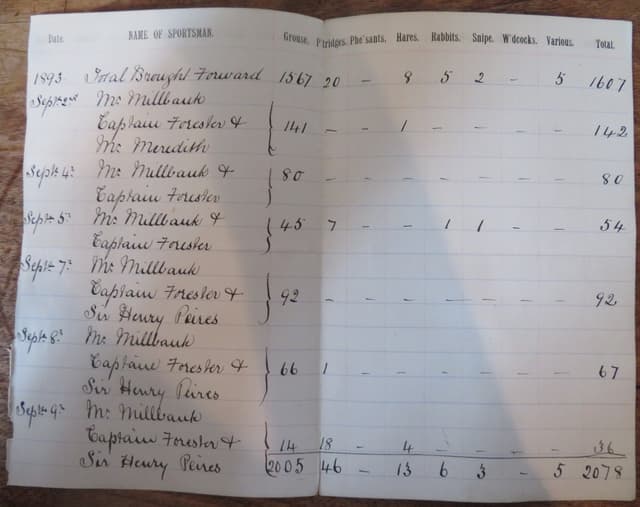 Date. NAME OF SPORTSMAN. Grouse. P'tridges. Phe'sants. Hares. Rabbits. Snipe. W'dcocks. Various. Total.
1893 Total Brought Forward 1567 20 – 8 5 2 – 5 1607
Septr. 2nd Mr. Millbank
Captain Forester & 141 – – 1 – – – – 142
Mr. Meredith
Septr. 4th Mr. Millbank & 80 – – – – – – – 80
Captain Forester
Septr. 5th Mr. Millbank & 45 7 – – 1 1 – – 54
Captain Forester
Septr. 7th Mr. Millbank
Captain Forester & 92 – – – – – – – 92
Sir Henry Peires
Septr. 8th Mr. Millbank
Captain Forester & 66 1 – – – – – – 67
Sir Henry Peires
Septr. 9th Mr. Millbank
Captain Forester & 14 18 – 4 – – – – 36
Sir Henry Peires 2005 46 – 13 6 3 – 5 2078